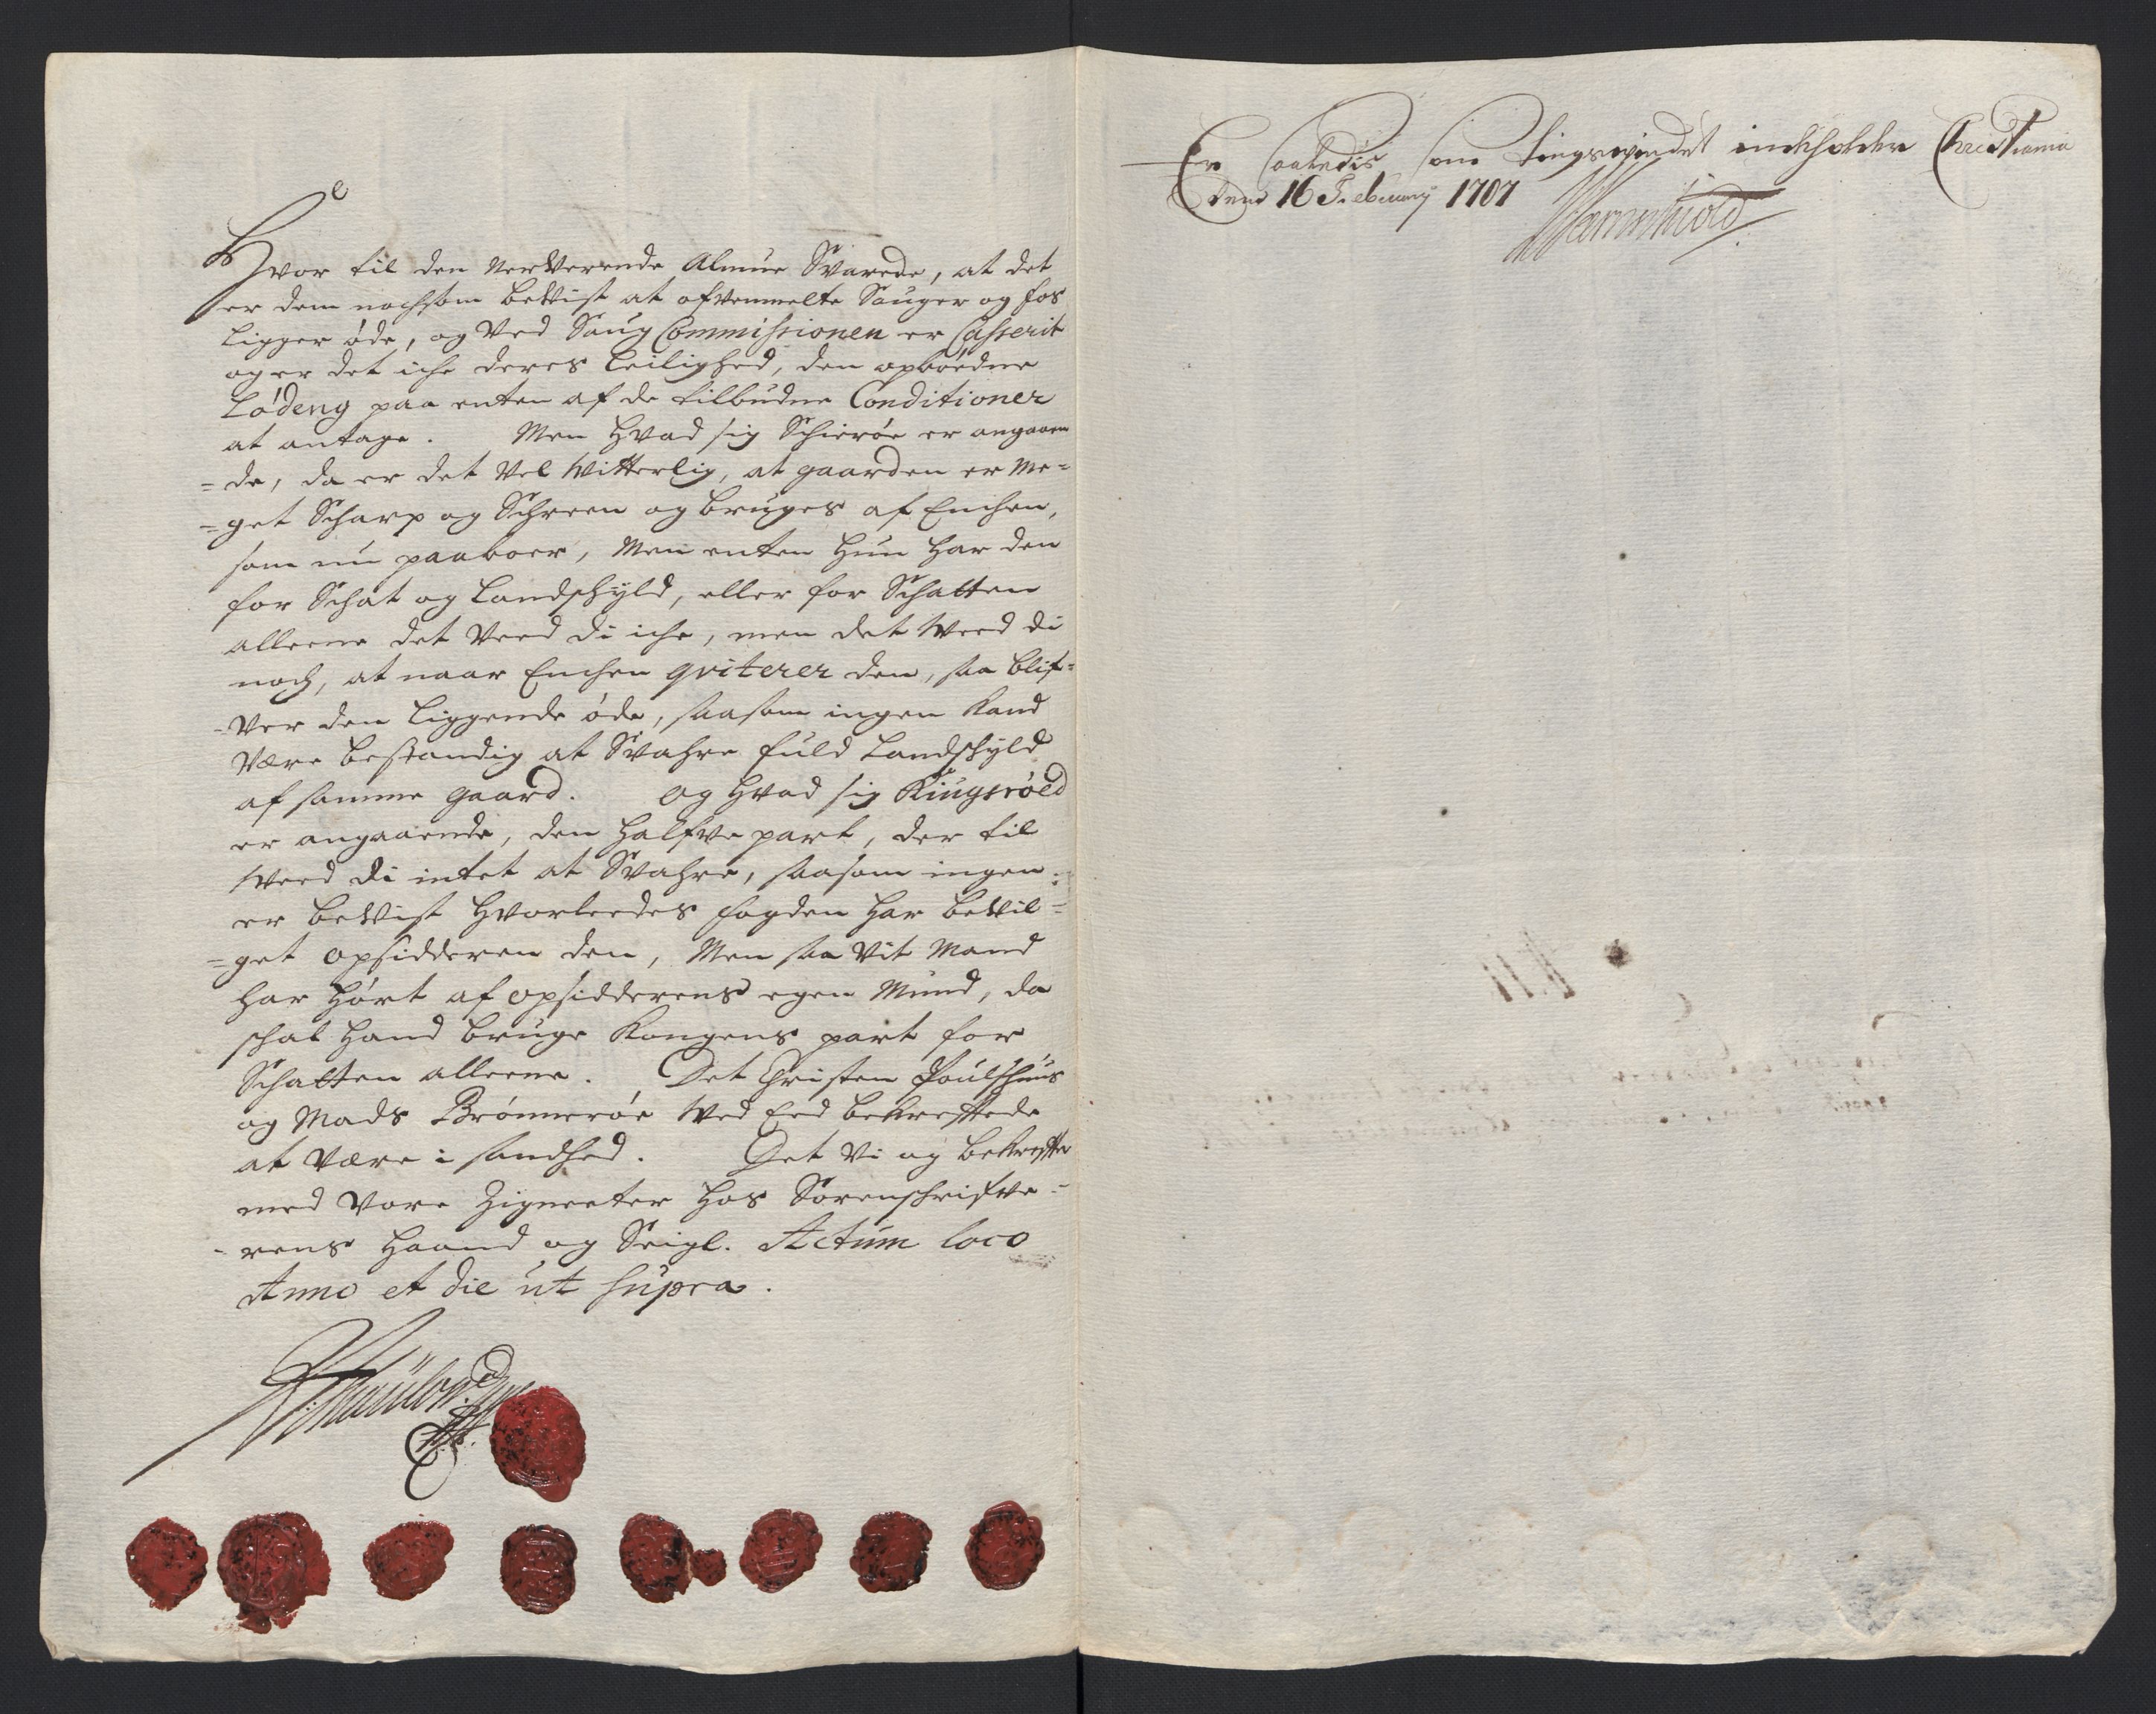 Hvor til den nerVerende Almue Svarede, at det
er dem nochsom beVist at ofvenmelte Sauger og fos
Ligger øde, og Ved Saug Commissionen er Casserit
og er det iche deres Leilighed, den opbøedne
Lødeng paa enten af de tilbudne Conditioner
at antage. Men hvad sig Schierøe er angaaen
=de, da er det Vel Witterlig, at gaarden er Me=
=get Scharp og Schreen og bruges af Enchen,
som nu paaboer, Men enten hun har den
for Schat og Landschyld, eller for Schatten
alleene det Veed di iche, men det Weed di
noch, at naar Enchen qviterer den, saa blif=
-Ver den Liggende øde, saasom ingen kand
Være bestandig at Svahre fuld Landschyld
af samme gaard. og hvad sig Ringsrøed
er angaaende, den halfve part, der til
Weed di intet at Svahre, saasom ingen
er beVist hvorleedes fogden har beVil=
=get opsidderen den, Men saa Vit Mand
har hørt af opsidderens egen Mund, da
schal hand bruge Kongens part for
Schatten alleene. Det Christen Poulshuus
og Mads Brønnerøe Wed Eed bekreftede
at Være i sandhed. Det Vi og bekrefter
med Vore Zigneeter hos Sorenschrifve=
-rens haand og Seigl. Actum loco
Anno et die ut supra.
Er saaledis som tingsvindet indeholder Christiania
dend 16 Febuarij 1707